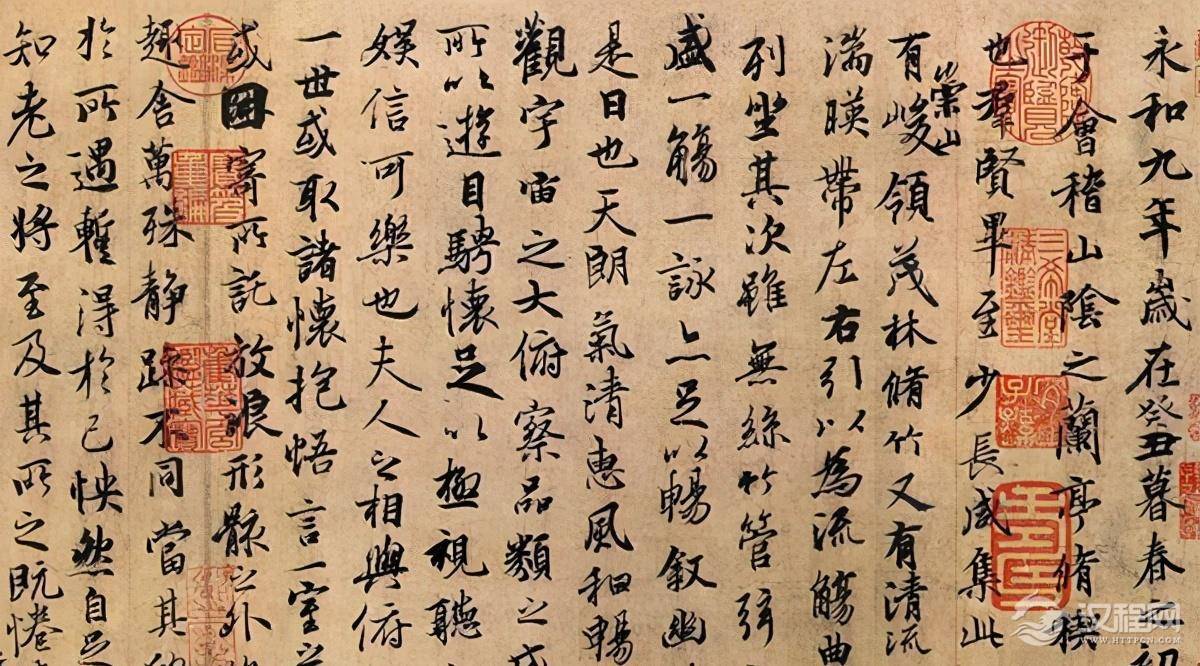 永和九年歲在癸丑暮春之初
于會稽山陰之蘭亭脩禊
也羣賢畢至少長咸集此
有崇山峻領茂林脩竹又有清流
湍暎帶左右引以為流觴曲
列坐其次雖無絲竹管弦
盛一觴一詠亦足以暢敘幽
是日也天朗氣清惠風和暢
觀宇宙之大俯察品類之
所以遊目騁懷足以極視聽
娛信可樂也夫人之相與俯
一世或取諸懷抱悟言一室之
或因寄所託放浪形骸之外
趣舍萬殊靜躁不同當其
於所遇暫得於己怏然自足
知老之將至及其所之既惓
三希堂精鑑璽
汉程网
WWW.HTTPCN.COM